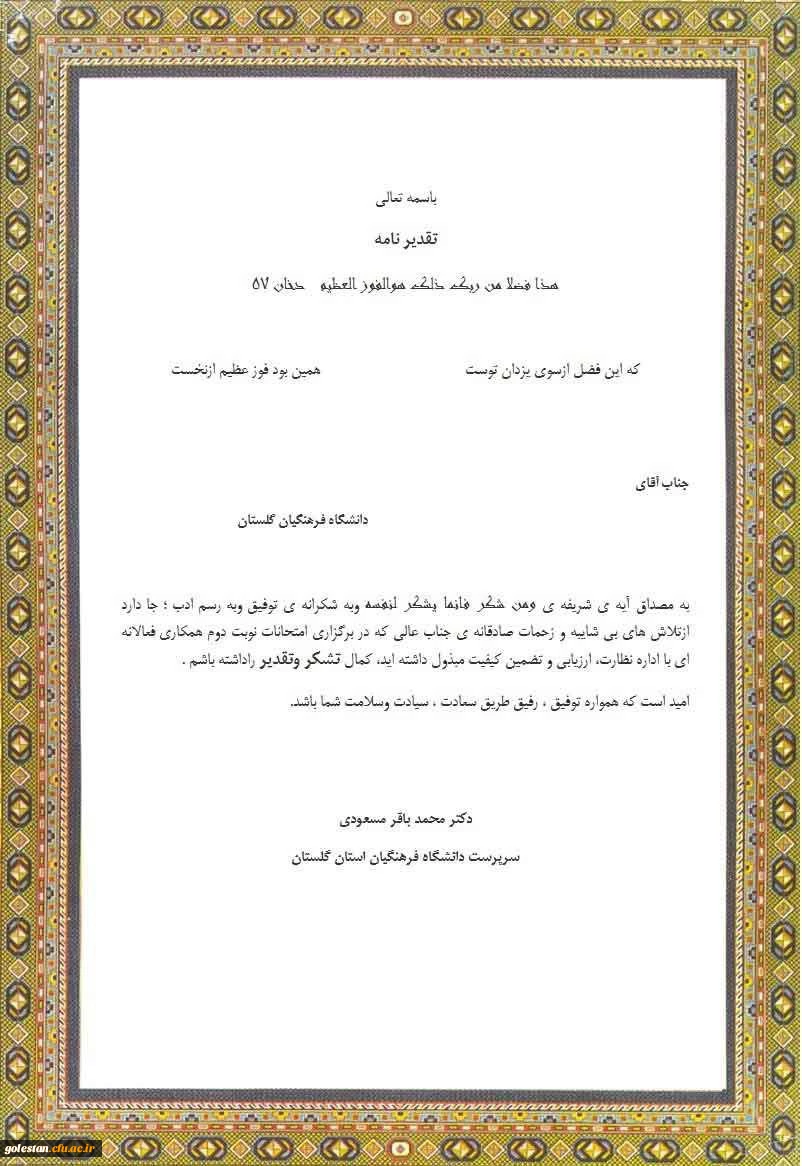 باسمه تعالی
تقدیر نامه
هذا فضلا من ربک ذلک هوالفوز العظیم دخان ۵۷
که این فضل ازسوی یزدان توست همین بود فوز عظیم ازنخست
جناب آقای
دانشگاه فرهنگیان گلستان
به مصداق آیه ی شریفه ی ومن شکر فانما یشکر لنفسه وبه شکرانه ی توفیق وبه رسم ادب ؛ جا دارد
ازتلاش های بی شایبه و زحمات صادقانه ی جناب عالی که در برگزاری امتحانات نوبت دوم همکاری فعالانه
ای با اداره نظارت، ارزیابی و تضمین کیفیت مبذول داشته اید، کمال تشکر وتقدیر راداشته باشم .
امید است که همواره توفیق ، رفیق طریق سعادت ، سیادت وسلامت شما باشد.
دکتر محمد باقر مسعودی
سرپرست دانشگاه فرهنگیان استان گلستان
golestan.cfu.ac.ir